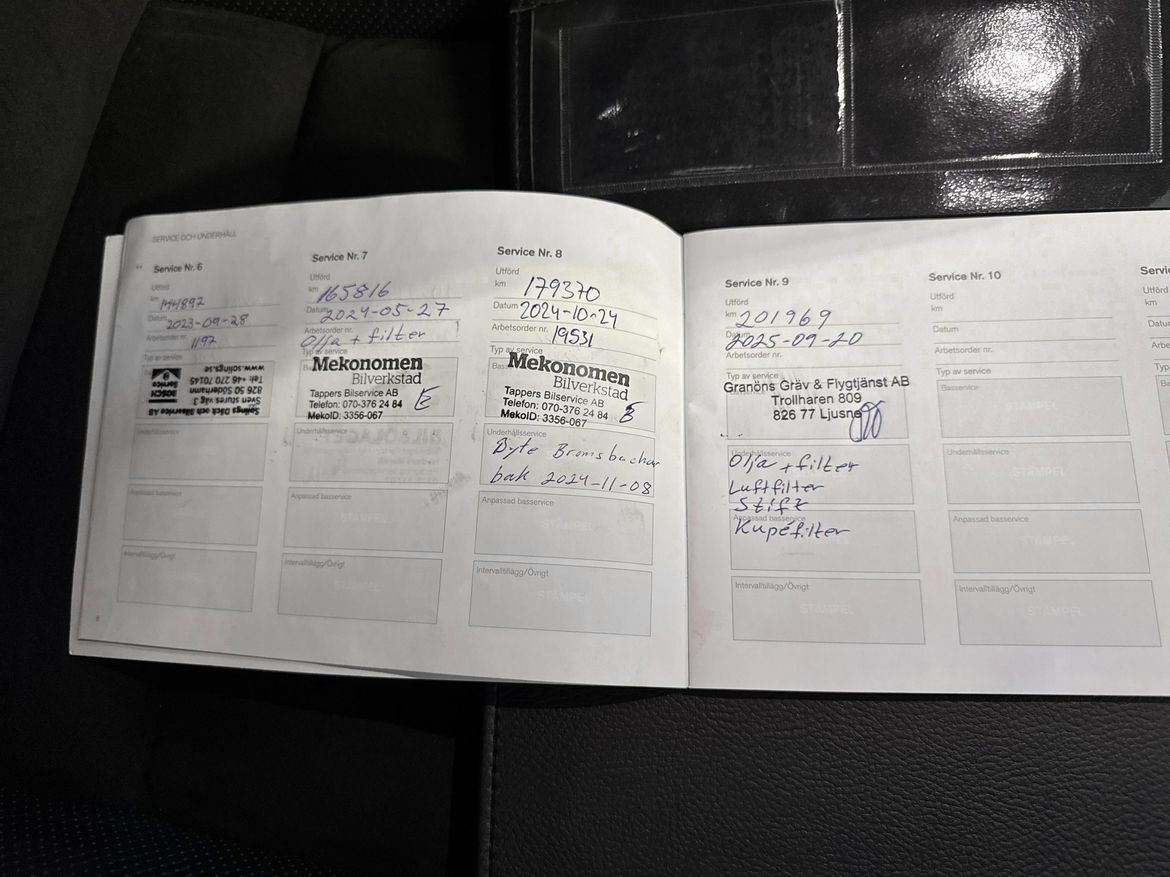 SERVICE OCH UNDERHÅLL
Service Nr. 6
Utförd
km 144892
Datum 2023-09-28
Arbetsorder nr. 1197
Typ av service
Sölings Däck och Bilservice AB
Sven stures väg 3
826 50 Söderhamn
Tel: +46 270 70145
www.solings.se
BOSCH
Service
Underhållsservice
Anpassad basservice
Intervalltillägg/Övrigt
Service Nr. 7
Utförd
km 165816
Datum 2024-05-27
Arbetsorder nr.
Olja + filter
Typ av service
Mekonomen
Bilverkstad
Tappers Bilservice AB
Telefon: 070-376 24 84
MekoID: 3356-067
Underhållsservice
Anpassad basservice
STÄMPEL
Intervalltillägg/Övrigt
STÄMPEL
Service Nr. 8
Utförd
km 179370
Datum 2024-10-24
Arbetsorder nr. 19531
Typ av service
Mekonomen
Bilverkstad
Tappers Bilservice AB
Telefon: 070-376 24 84
MekoID: 3356-067
Underhållsservice
Byte Bromsbackar
bak 2024-11-08
Anpassad basservice
STÄMPEL
Intervalltillägg/Övrigt
STÄMPEL
Service Nr. 9
Utförd
km 201969
Datum 2025-09-20
Arbetsorder nr.
Typ av service
Granöns Gräv & Flygtjänst AB
Trollharen 809
826 77 Ljusne
Underhållsservice
Olja + filter
Luftfilter
Stift
Anpassad basservice
Kupefilter
Intervalltillägg/Övrigt
STÄMPEL
Service Nr. 10
Utförd
km
Datum
Arbetsorder nr.
Typ av service
Basservice
Underhållsservice
STÄMPEL
Anpassad basservice
STÄMPEL
Intervalltillägg/Övrigt
STÄMPEL
Servi
Utförd
km
Datum
Arbets
Typ av